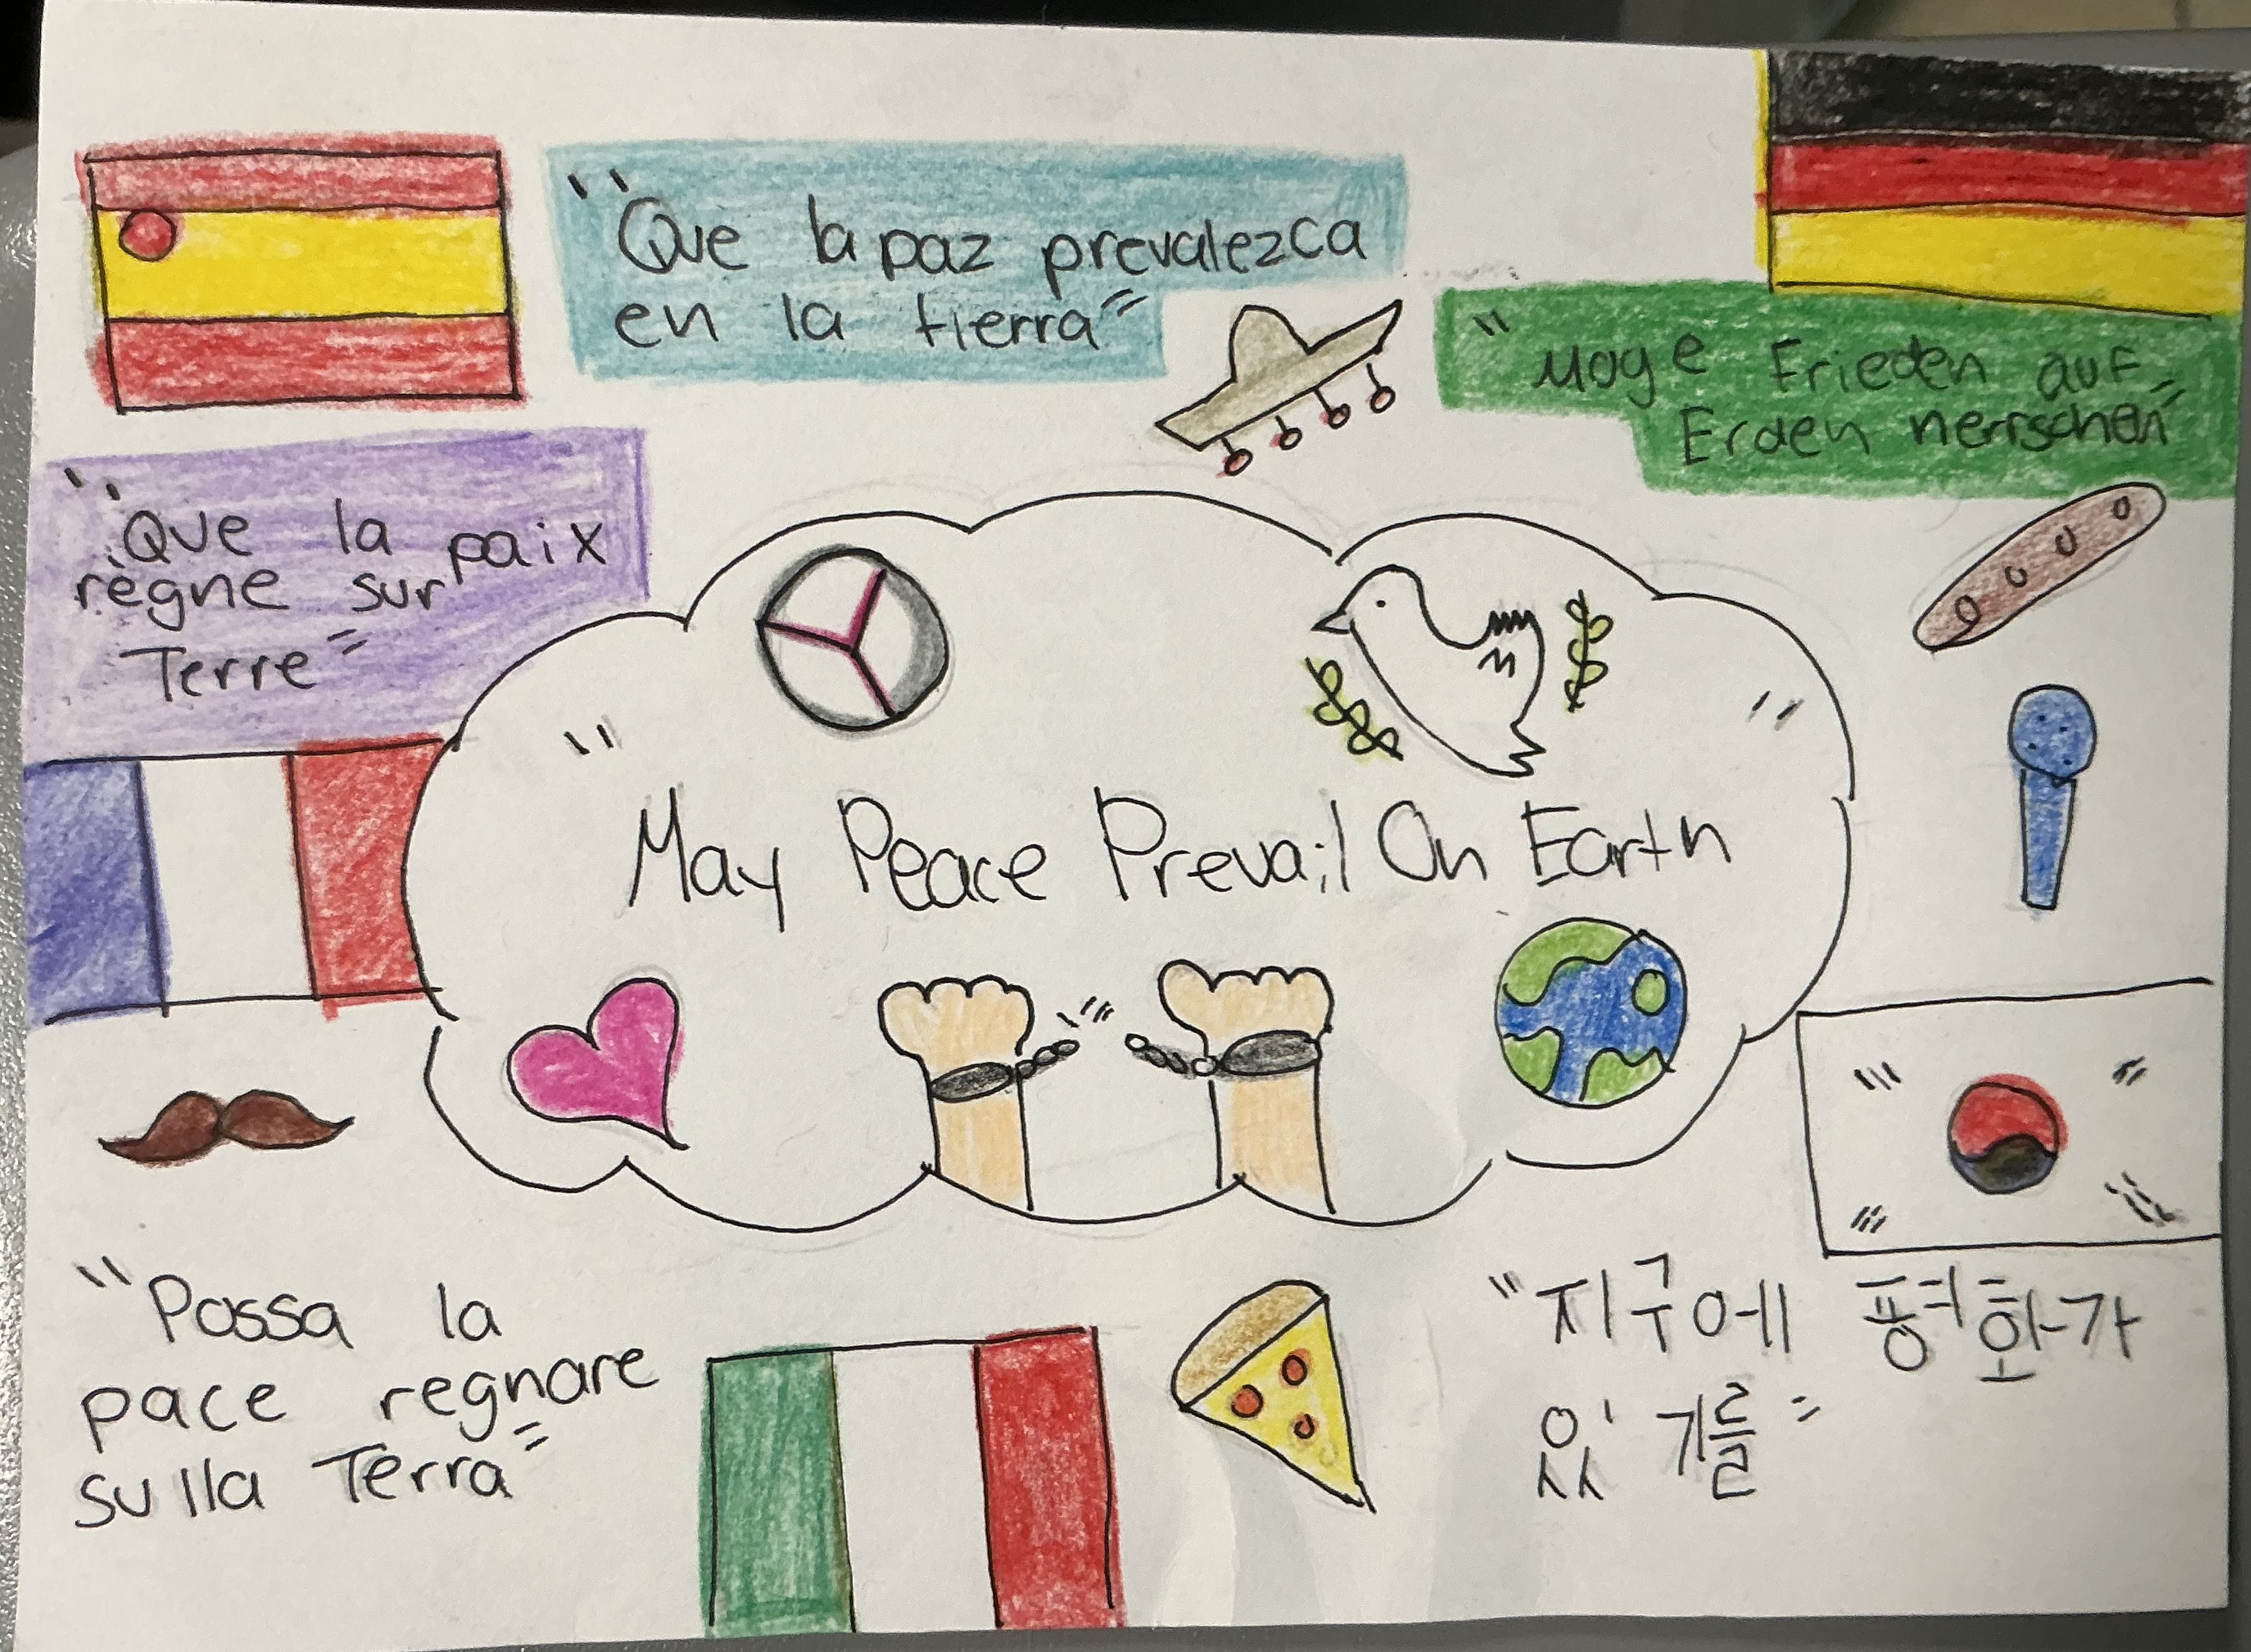 "Que la paz prevalezca
en la tierra"
"Moge Frieden auf
Erden herrschen"
"Que la paix
règne sur
Terre"
"May Peace Prevail On Earth"
"Possa la
pace regnare
sulla Terra"
"지구에 평화가
있기를"